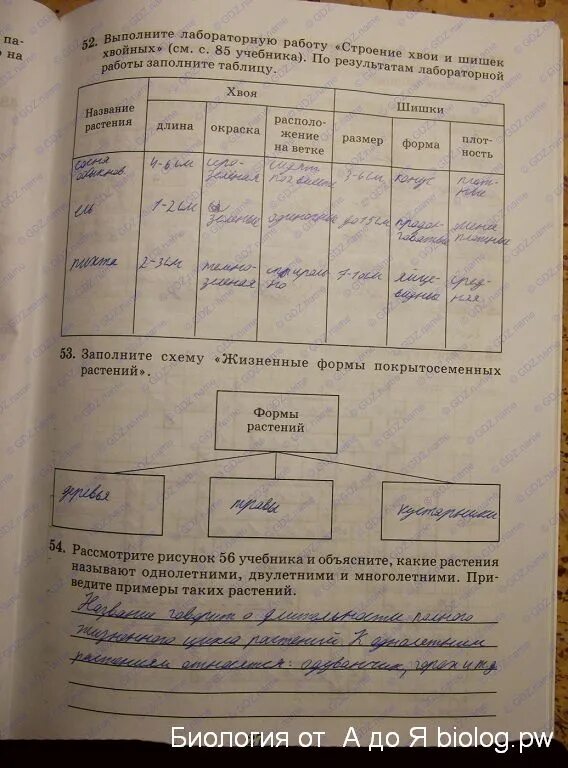 па-
о на
52. Выполните лабораторную работу «Строение хвои и шишек
хвойных» (см. с. 85 учебника). По результатам лабораторной
работы заполните таблицу.
Название растения
Хвоя
Шишки
длина
окраска
расположение на ветке
размер
форма
плотность
сосна обыкнов. 4-6см серо-зеленая 3-6см конус плотные
ель 1-2см зеленые одиночные до 15см продолговатые плотные
пихта 2-3см темно-зеленая 7-10см яйцевидные средняя
53. Заполните схему «Жизненные формы покрытосеменных
растений».
Формы
растений
деревья
травы
кустарники
54. Рассмотрите рисунок 56 учебника и объясните, какие растения
называют однолетними, двулетними и многолетними. При-
ведите примеры таких растений.
Название говорит о длительности полного
жизненного цикла растений. К однолетним
растениям относятся: одуванчик, горох и тд
Биология от А до Я biolog.pw
© GDZ.name